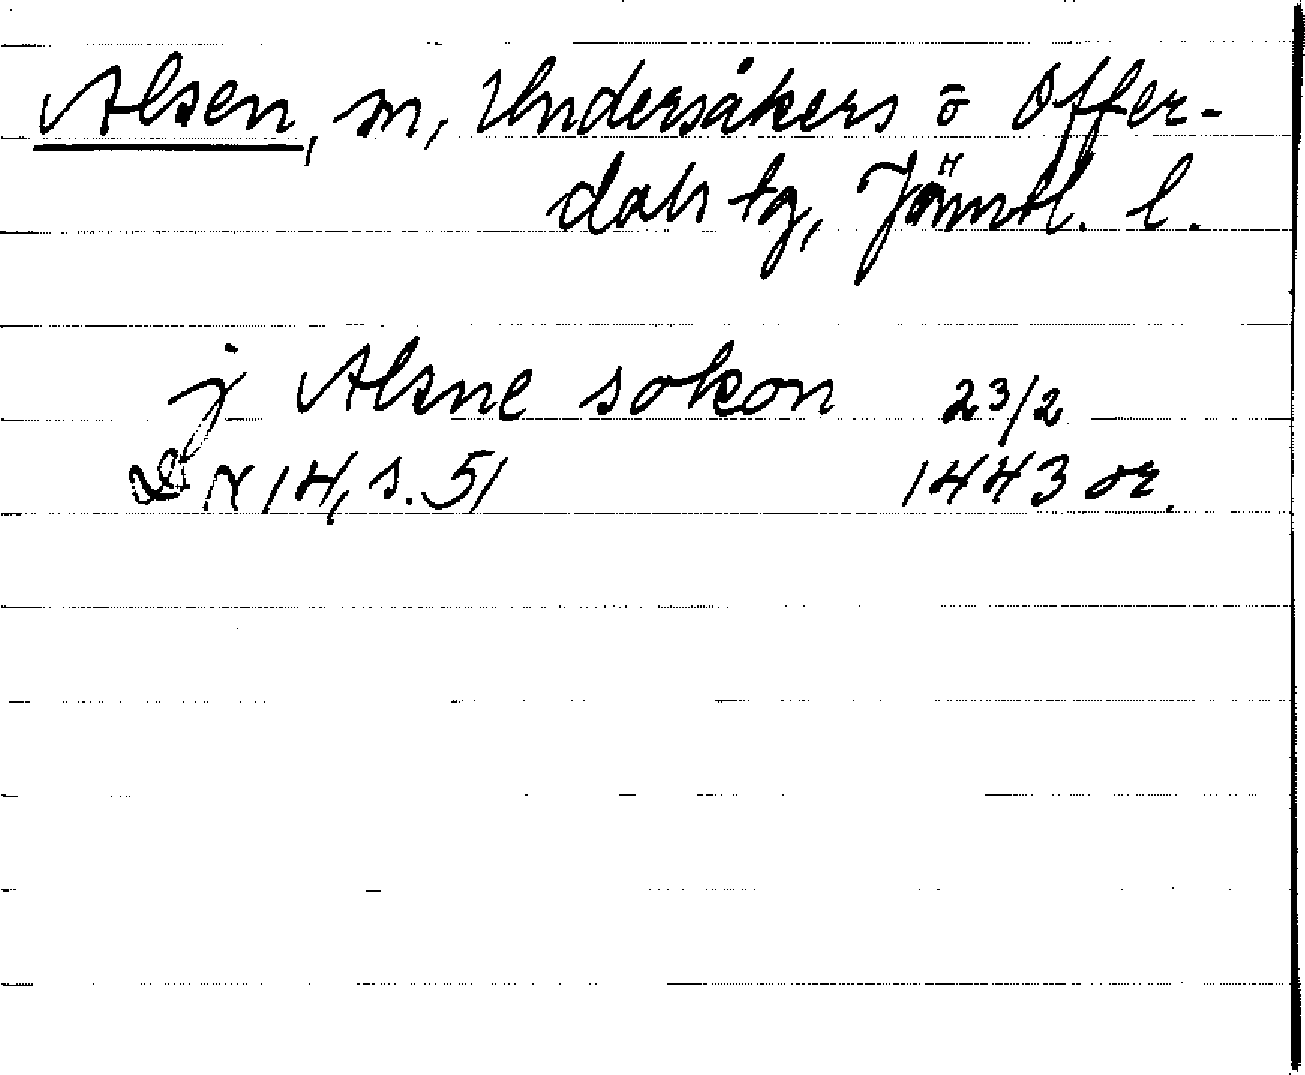 Alsen, sn, Undersåkers o Offer-
dals tg, Jämtl. l.
j Alsne sokon 23/2
N 14, s. 51 1443 or.